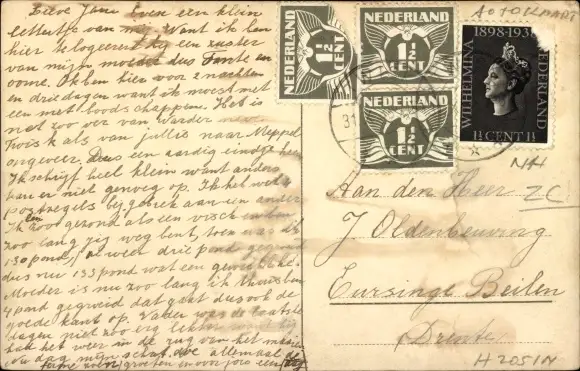 Lieve Jans Even een klein
lettertje van mij. Want ik ben
hier gelogeerd bij een zuster
van mijn moeder dus Tante en
oome. Ik ben hier voor 2 nachten
en drie dagen want ik moest met
een met boodschappen. Het is
net zoo ver van Warder
als van jullie naar Meppel
ongeveer. Dus een aardig eindje
Ik schrijf heel klein want anders
kan er niet genoeg op. Ik het wel
postzegels bij gebrek aan een ander
Ik ben zoo gezond als een visch
zoo lang jij weg bent, toen was ik
130 pond, weer drie pond
dus nu 133 pond wat een gewicht he.
Moeder is nu zoo lang ik thuis ben
4 pond gegroeid dat gaat dus ook de
goede kant op. Vader was de laatste
dagen niet zoo erg lekker
het weer in de rug van het
Nu dag mijn schat. doe allemaal de
groeten en voor jou een
NEDERLAND
1½
CENT
NEDERLAND
1½
CENT
NEDERLAND
1½
CENT
1898-193
WILHELMINA
EDERLAND
1½ CENT 1½
31
NH
ZC
Aan den Heer
J Oldenbeuving
Eursinge Beilen
Drente
H2051N